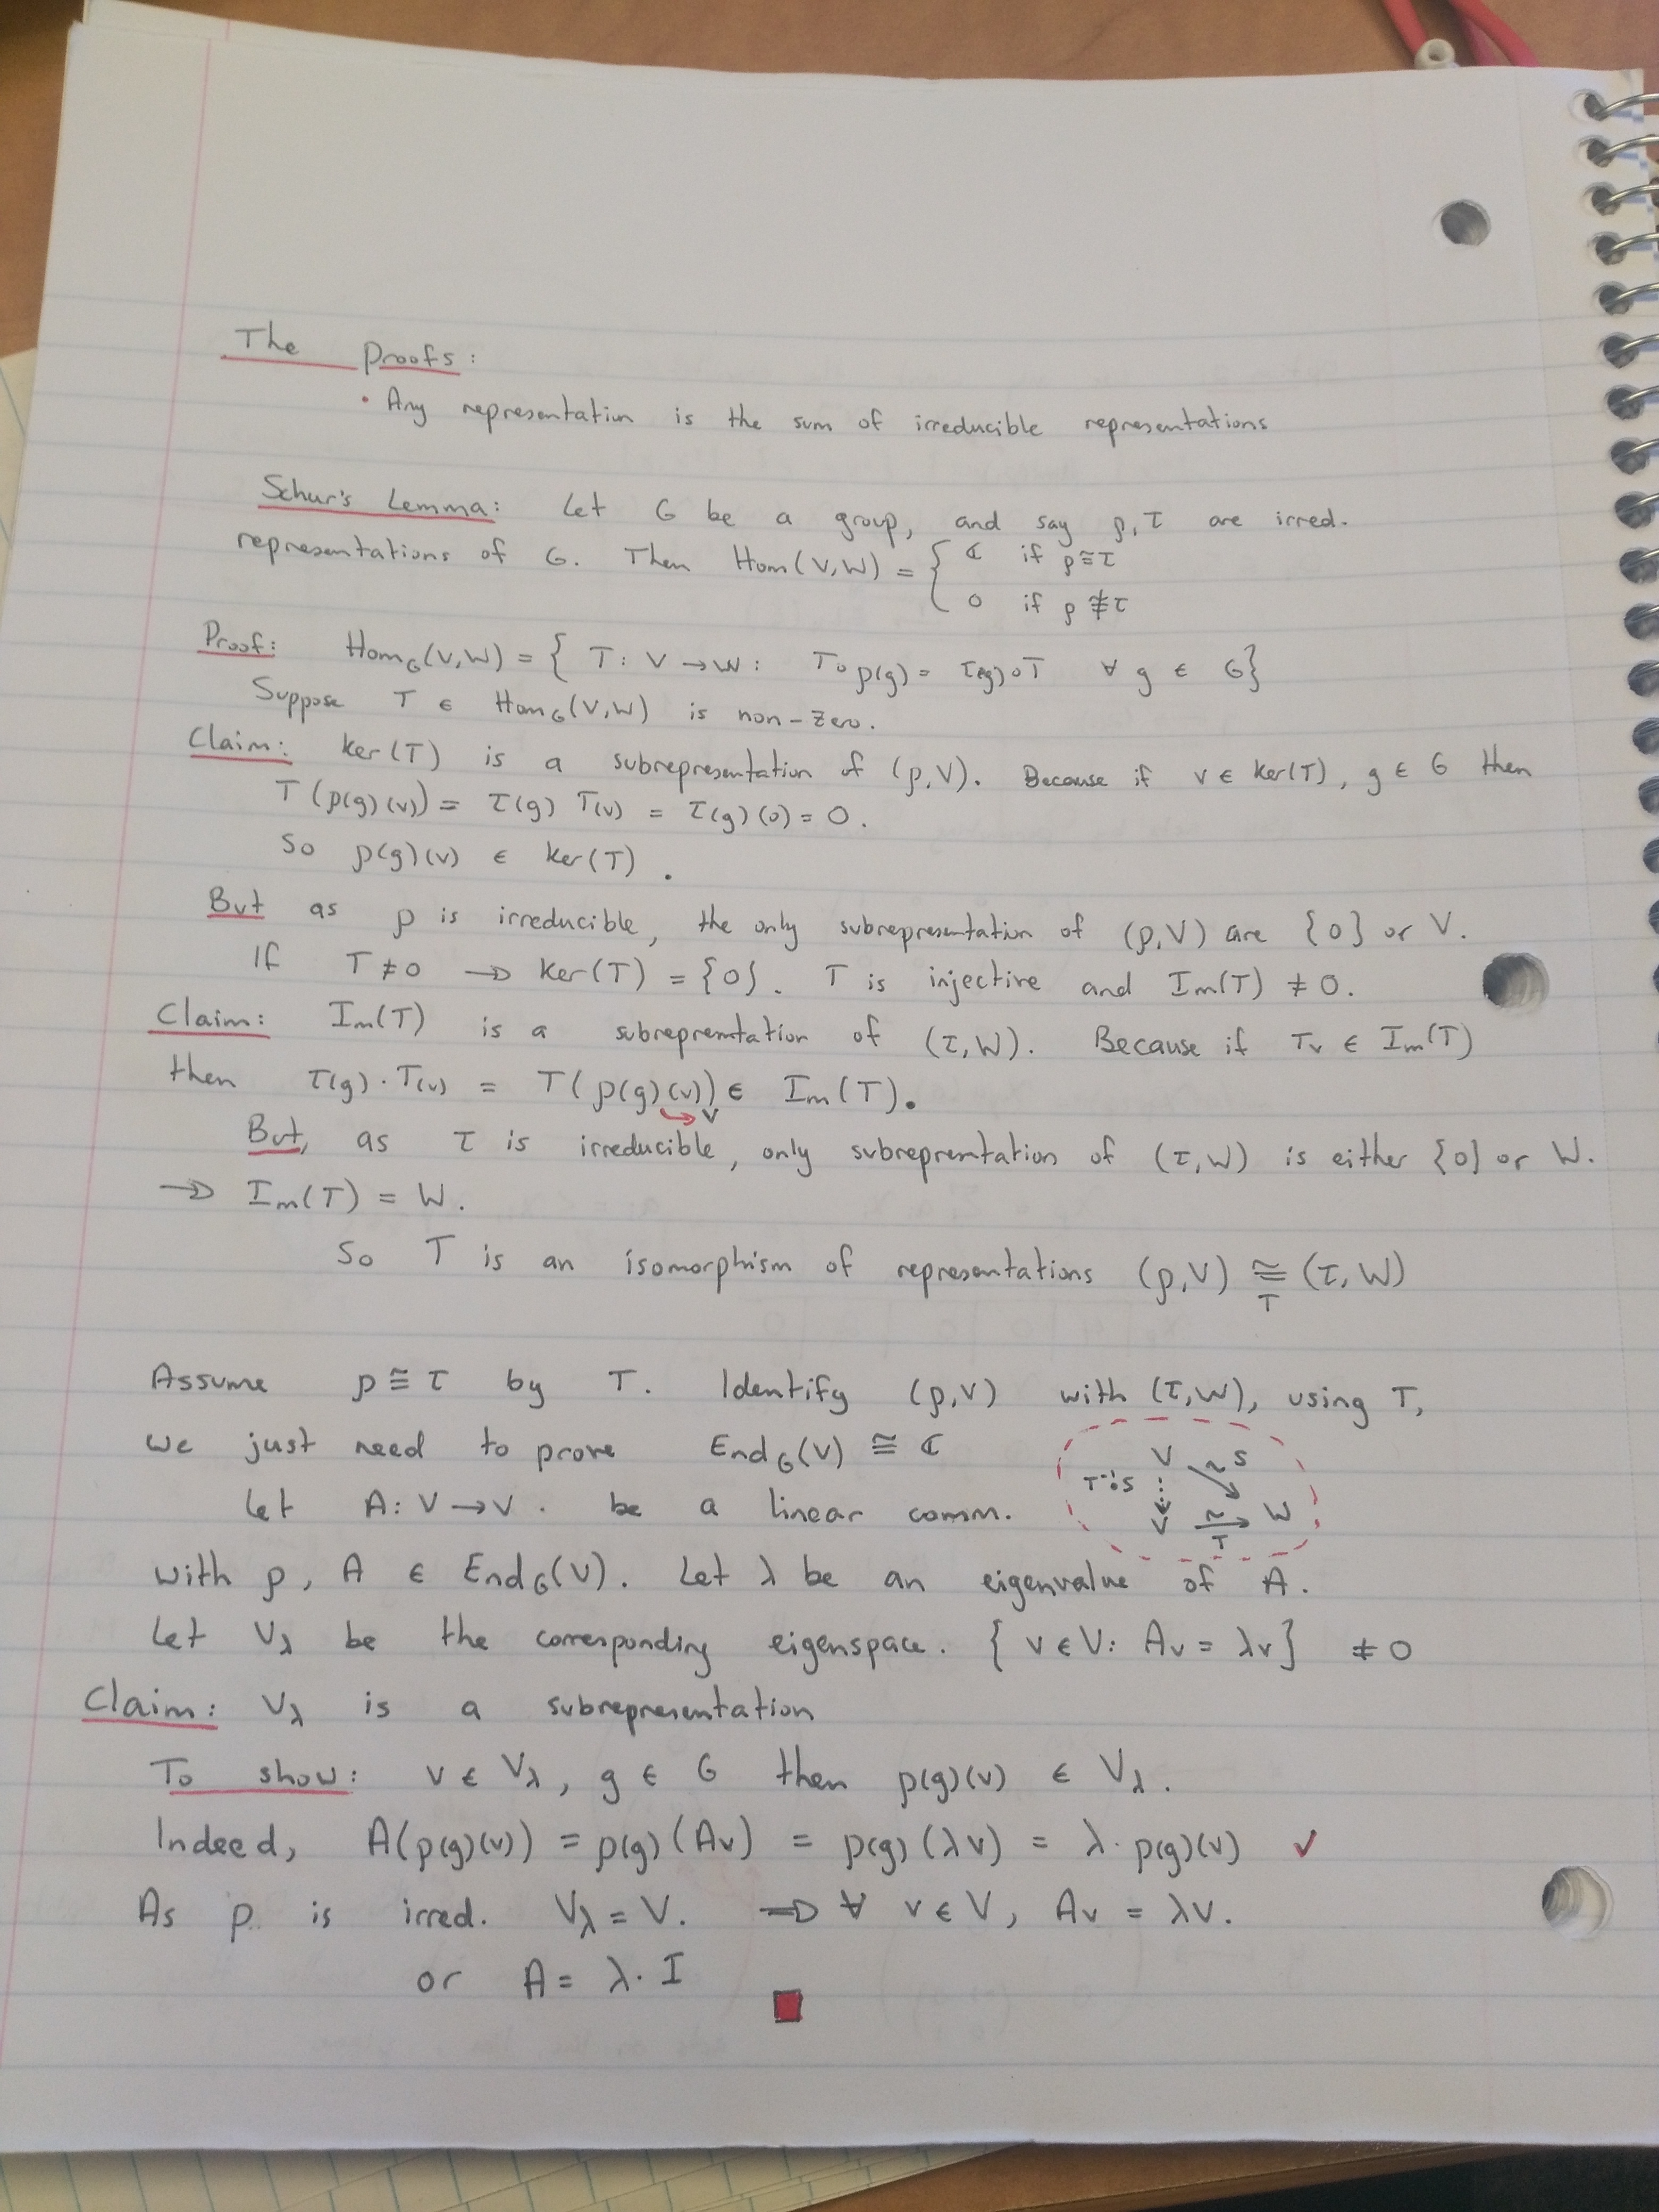 The Proofs:
• Any representation is the sum of irreducible representations
Schur's Lemma: Let G be a group, and say ρ, τ are irred.
representations of G. Then Hom(V,W) = { ℂ if ρ≅τ
0 if ρ≇τ
Proof: Hom_G(V,W) = { T: V→W: T∘ρ(g) = τ(g)∘T ∀ g ∈ G}
Suppose T ∈ Hom_G(V,W) is non-zero.
Claim: Ker(T) is a subrepresentation of (ρ,V). Because if v ∈ Ker(T), g ∈ G then
T(ρ(g)(v)) = τ(g) T(v) = τ(g)(0) = 0.
So ρ(g)(v) ∈ Ker(T).
But as ρ is irreducible, the only subrepresentation of (ρ,V) are {0} or V.
If T ≠ 0 → Ker(T) = {0}. T is injective and Im(T) ≠ 0.
Claim: Im(T) is a subreprentation of (τ,W). Because if Tv ∈ Im(T)
then τ(g)·T(v) = T(ρ(g)(v)) ∈ Im(T).
V
But, as τ is irreducible, only subreprentation of (τ,W) is either {0} or W.
→ Im(T) = W.
So T is an isomorphism of representations (ρ,V) ≅ (τ,W)
T
Assume ρ≅τ by T. Identify (ρ,V) with (τ,W), using T,
we just need to prove End_G(V) ≅ ℂ
V ~ S
T⁻¹∘S
V ~ W
T
Let A: V→V. be a linear comm.
with ρ, A ∈ End_G(V). Let λ be an eigenvalue of A.
Let V_λ be the corresponding eigenspace. { v∈V: Av = λv} ≠ 0
Claim: V_λ is a subrepresentation
To show: v ∈ V_λ, g ∈ G then ρ(g)(v) ∈ V_λ.
Indeed, A(ρ(g)(v)) = ρ(g)(Av) = ρ(g)(λv) = λ·ρ(g)(v) ✓
As ρ is irred. V_λ = V. ⇒ ∀ v∈V, Av = λv.
or A = λ·I